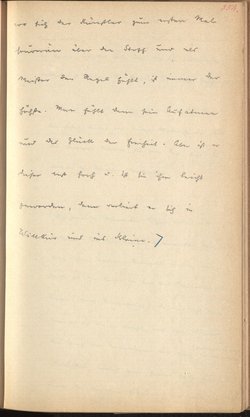 wo sich der Künstler zum ersten Mal
souverän über den Stoff und als
Meister der Regel fühlt, ist immer der
höchste. Man fühlt dann sein Aufatmen
und das Glück der Freiheit. Aber ist er
daher erst hoch u. ist sie ihm leicht
geworden, dann verliert er sich in
Willkür und ins Kleine.